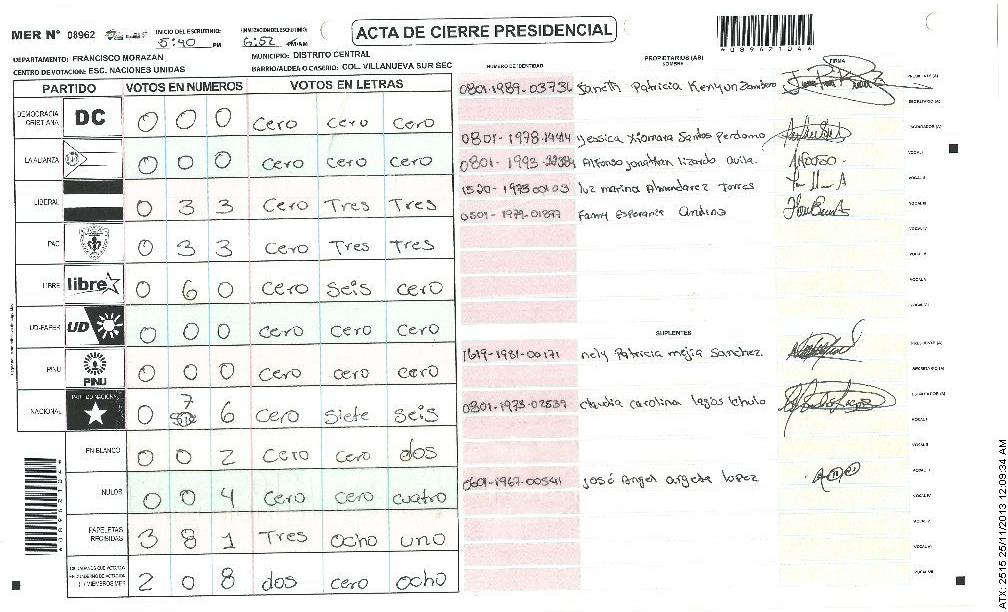 MER N° 08962
INICIO DEL ESCRUTINIO: 5:40 PM
6:52
ACTA DE CIERRE PRESIDENCIAL
DEPARTAMENTO: FRANCISCO MORAZAN
MUNICIPIO: DISTRITO CENTRAL
CENTRO DE VOTACION: ESC. NACIONES UNIDAS
BARRIO/ALDEA O CASERIO: COL. VILLANUEVA SUR SEC
PARTIDO VOTOS EN NUMEROS VOTOS EN LETRAS
DEMOCRACIA CRISTIANA DC 0 0 0 Cero Cero Cero
LA ALIANZA 0 0 0 Cero Cero Cero
LIBERAL 0 3 3 Cero Tres Tres
PAC 0 3 3 Cero Tres Tres
LIBRE libre 0 6 0 Cero Seis Cero
UD-FAPER UD 0 0 0 Cero Cero Cero
PINU PINU 0 0 0 Cero Cero Cero
NACIONAL PARTIDO NACIONAL 0 7 6 Cero Siete Seis
EN BLANCO 0 0 2 Cero Cero dos
NULOS 0 0 4 Cero Cero Cuatro
PAPELETAS RECIBIDAS 3 8 1 Tres Ocho uno
2 0 8 dos Cero Ocho
NUMERO DE IDENTIDAD
PROPIETARIOS (AS)
NOMBRE
FIRMA
0801-1989-03736 Janeth Patricia Kenyun Zambrano
PRESIDENTE (A)
SECRETARIO (A)
0801-1978-1444 Yessica Xiomara Santos Perdomo
ESCRUTADOR (A)
0801-1993- Alfonso jonathan lizardo avila.
VOCAL I
1520-1975-00103 luz marina Torres
VOCAL II
0501-1979-01897 Fanny Esperanza Andino
VOCAL III
VOCAL IV
VOCAL V
SUPLENTES
1619-1981-00171 nely Patricia mejia Sanchez.
PRESIDENTE (A)
SECRETARIO (A)
0801-1973-02839 claudia carolina
ESCRUTADOR (A)
VOCAL I
VOCAL II
0601-1967-00541 josé Angel argeta lopez
VOCAL III
VOCAL IV
VOCAL V
VOCAL VI
VOCAL VII
ATX: 2515 25/11/2013 12:09:34 AM